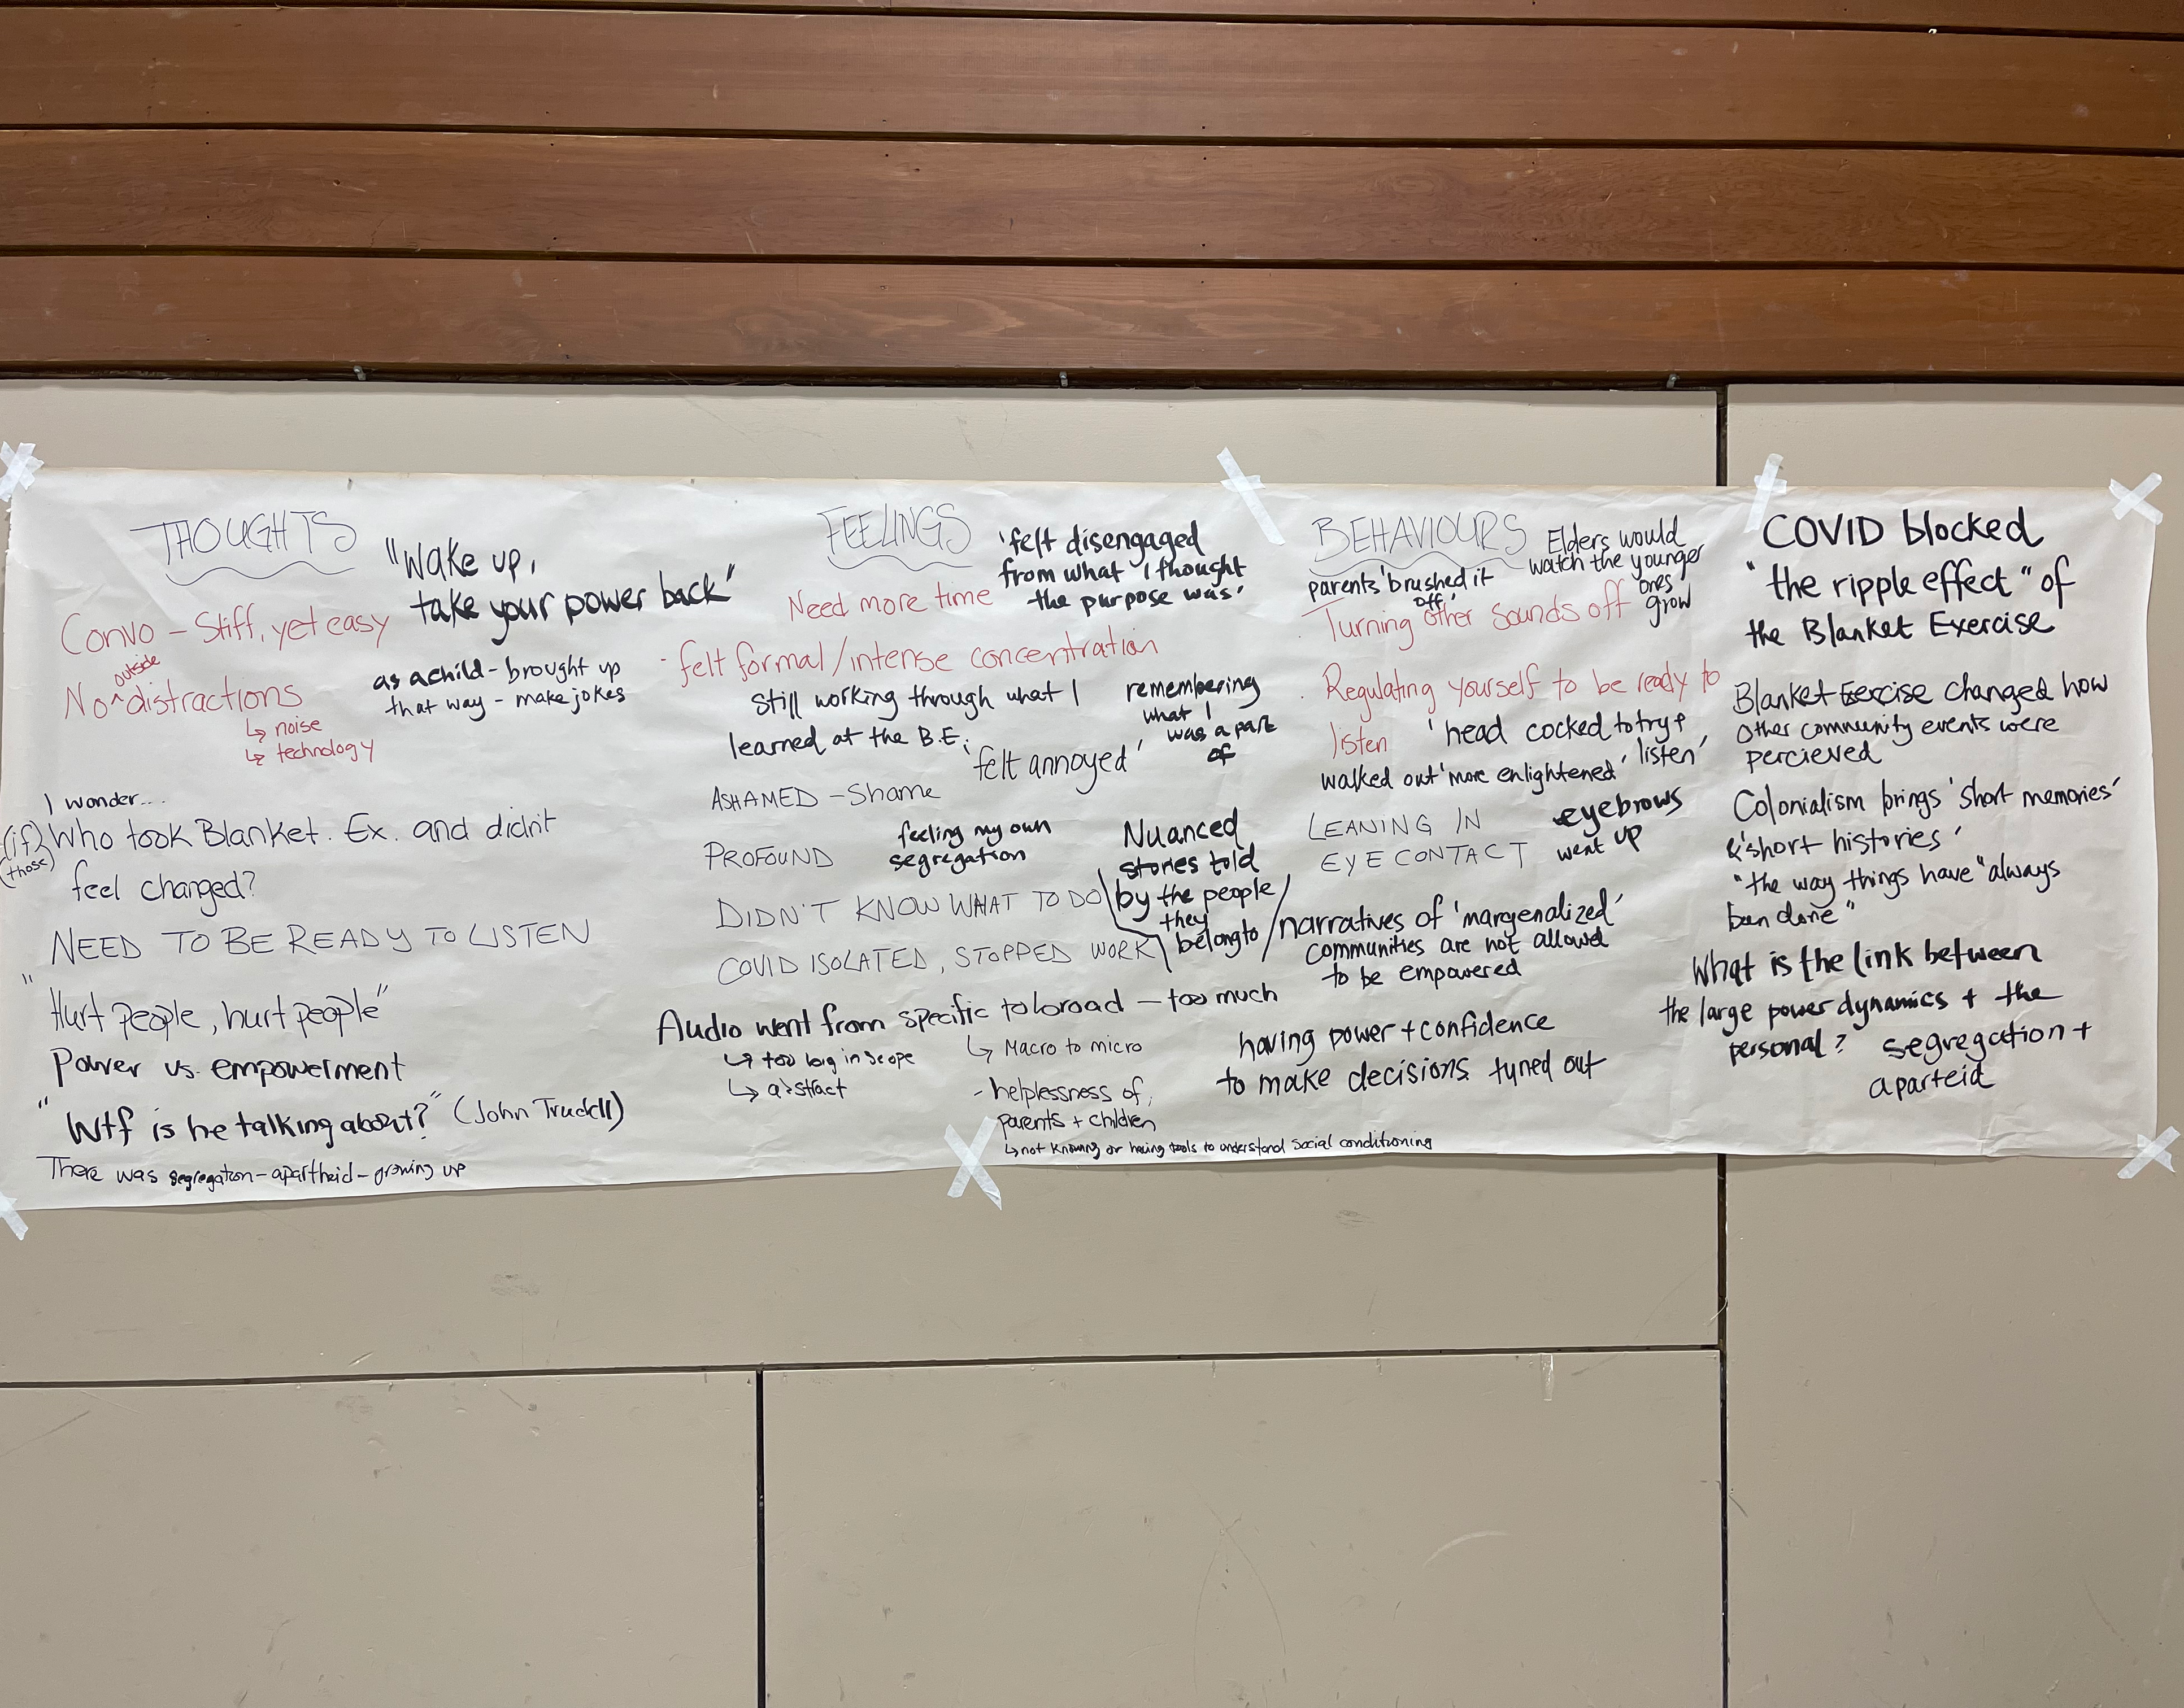 THOUGHTS
"Wake up,
take your power back"
Convo - Stiff, yet easy
No ^outside distractions
↳ noise
↳ technology
as a child - brought up
that way - make jokes
I wonder...
(if) Who took Blanket. Ex. and didn't
(those)
feel changed?
NEED TO BE READY TO LISTEN
"Hurt people, hurt people"
Power vs. empowerment
"Wtf is he talking about?" (John Trudell)
There was segregation - apartheid - growing up
FEELINGS
'felt disengaged
from what I thought
the purpose was'
Need more time
- felt formal/intense concentration
Still working through what I
learned at the B.E.
remembering
what I
was a part
of
'felt annoyed'
ASHAMED - Shame
PROFOUND
feeling my own
segregation
Nuanced
stories told
by the people
they
belong to
DIDN'T KNOW WHAT TO DO
COVID ISOLATED, STOPPED WORK
Audio went from specific to broad - too much
↳ too big in scope
↳ abstract
↳ Macro to micro
- helplessness of
parents + children
↳ not knowing or having tools to understand social conditioning
BEHAVIOURS
Elders would
watch the younger
ones
grow
parents 'brushed it
off'
. Turning other sounds off
. Regulating yourself to be ready to
listen
'head cocked to try +
listen'
walked out 'more enlightened'
LEANING IN
EYE CONTACT
eyebrows
went up
narratives of 'margenalized'
communities are not allowed
to be empowered
having power + confidence
to make decisions tuned out
COVID blocked
"the ripple effect" of
the Blanket Exercise
Blanket Exercise changed how
other community events were
percieved
Colonialism brings 'short memories'
& 'short histories'
"the way things have "always
been done"
What is the link between
the large power dynamics + the
personal?
segregation +
aparteid